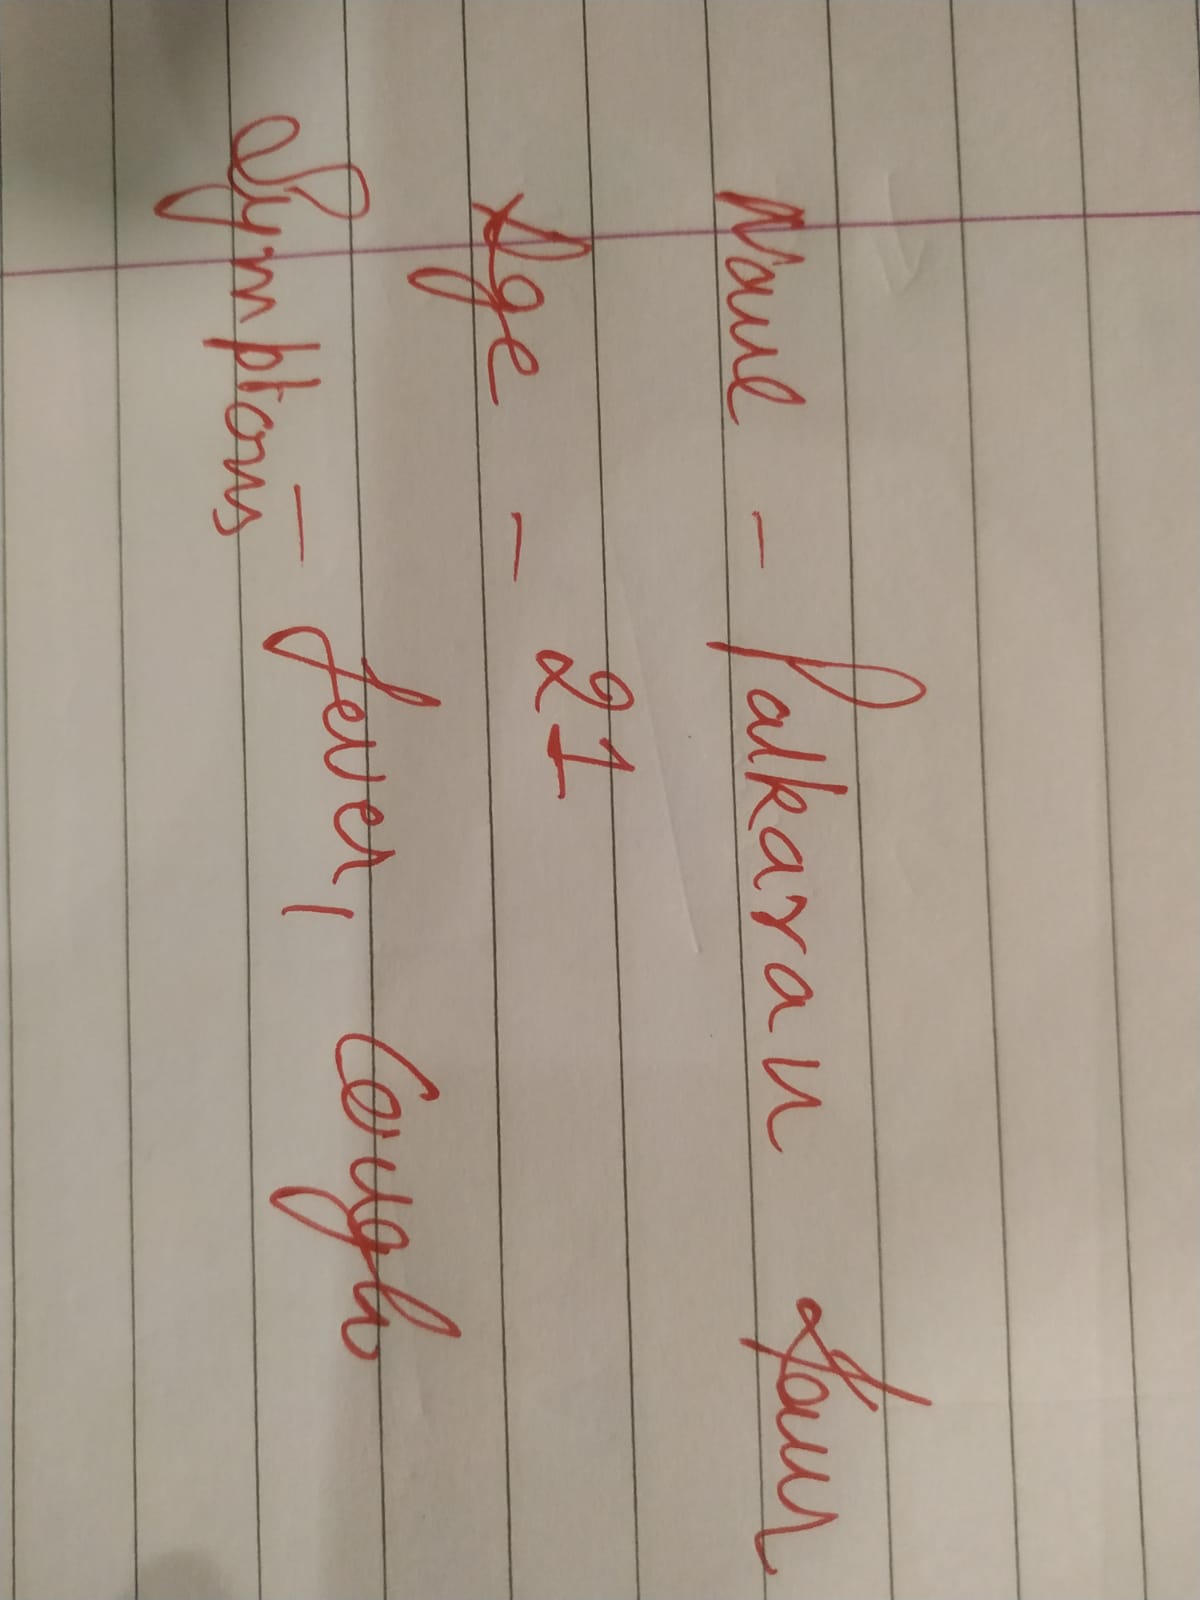 Name - Palkaran Kaur
Age - 21
Symptoms - fever, Cough